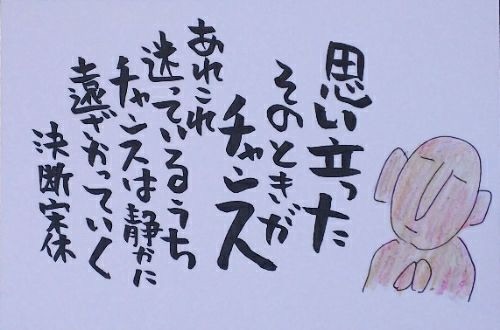 思い立った
そのときが
チャンス
あれこれ
迷っているうち
チャンスは静かに
遠ざかっていく
決断